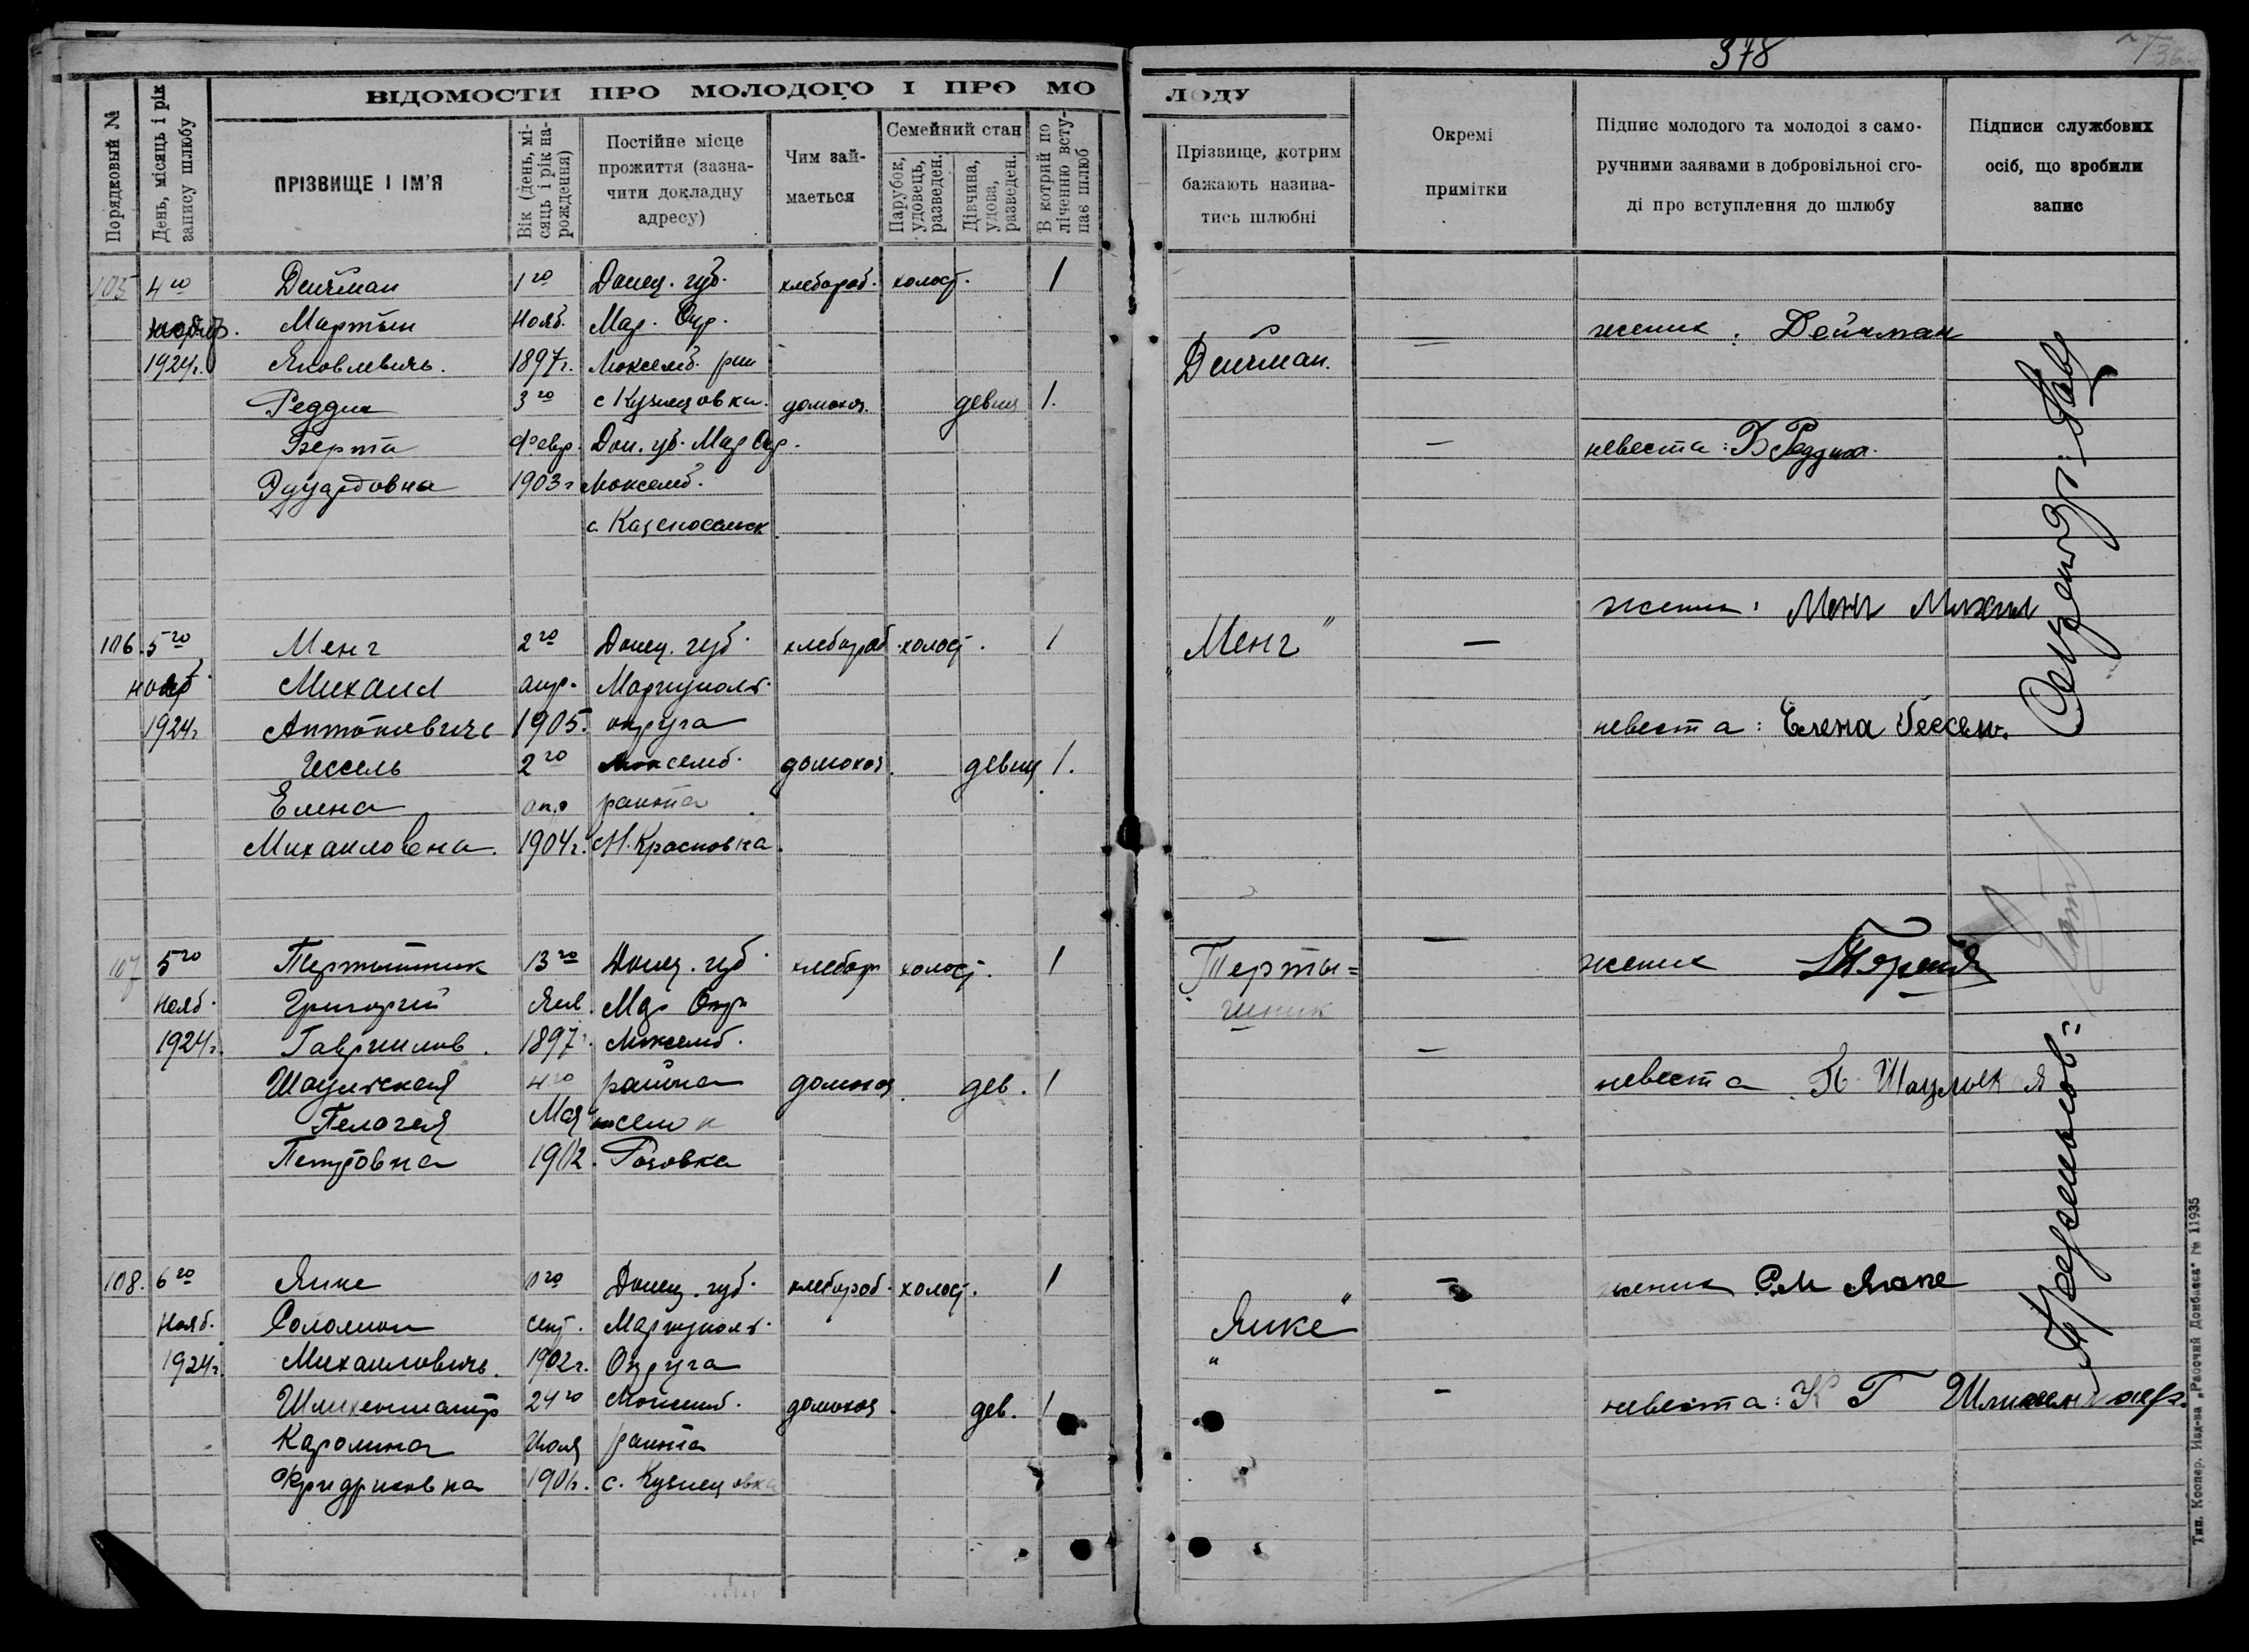 378
ВІДОМОСТИ ПРО МОЛОДОГО І ПРО МОЛОДУ
Порядковый №
День, місяць і рік запису шлюбу
ПРІЗВИЩЕ І ІМ'Я
Вік (день, місяць і рік народження)
Постійне місце прожиття (зазначити докладну адресу)
Чим займається
Семейний стан
Парубок, удовець, разведен.
Дівчина, удова, разведен.
В котрий по ліченню вступає шлюб
Прізвище, котрим бажають називатись шлюбні
Окремі примітки
Підпис молодого та молодоі з саморучними заявами в добровільноі сгоді про вступлення до шлюбу
Підписи службових осіб, що зробили запис
105 4го Дейчман 1го Донец. губ. хлебороб. холост. 1
Мартын Нояб. Мар. Окр. жених: Дейчман
1924г. Яковлевичь. 1897г. Люксемб. Дейчман. —
Реддих 3го с Кузнецовки. домохоз. девиц 1.
Берта Февр. Дон. губ. Мар Окр. — невеста: Б Реддих
Эдуардовна 1903г Люксемб.
с.
жених: Менг Михаил
106. 5го Менг 2го Донец. губ. хлебороб. холост. 1 „Менг" —
нояб Михаил апр. Мариупольс.
1924г Антоновичь 1905. округа невеста: Елена Гессель.
Гессель 2го Люксемб. домохоз. девиц 1.
Елена апр района
Михаиловна. 1904г. Н. Красновка.
107 5го Тертышник 13го Донец. губ. хлебороб холост. 1 Терты= — жених
Нояб. Григорий Янв. Мар Окр шник
1924г. Гавриилов. 1897г. Люксемб. —
Шаульская 4го района домохоз. дев. 1 невеста П. Шаульская
Пелагея Мая
Петровна 1902. Розовка
108. 6го Янке 10го Донец. губ. хлебороб. холост. 1 — жених С.М Янке
Нояб. Соломон сент. Мариупольс. „Янке"
1924г. Михаилович. 1902г. Округа
24го Люксемб. домохоз. дев. 1 — невеста: К Г
Каролина Июля района
Фридриховна с. Кузнецовка
Тип. Коопер. Изд-ва „Рабочий Донбасса" № 11935